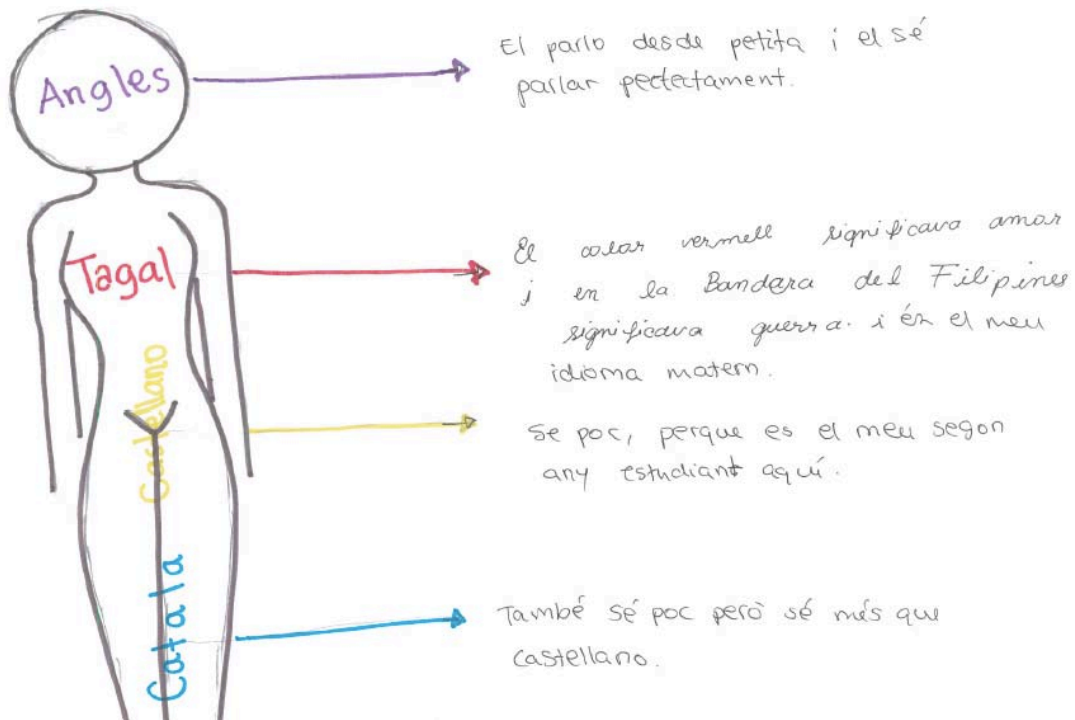 Angles
El parlo desde petita i el sé
parlar pectectament.
Tagal
El color vermell significava amor
i en la Bandera del Filipines
significava guerra. i én el meu
idioma matern.
Castellano
Se poc, perque es el meu segon
any estudiant aquí.
Catala
També sé poc però sé més que
castellano.